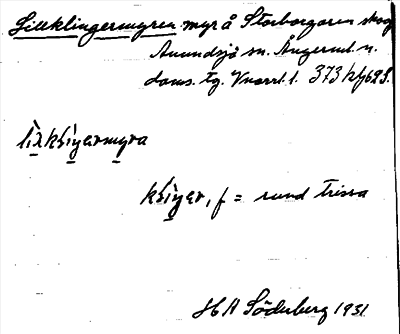 Lillklingermyren myr å Storborgaren skog
Anundsjö sn. Ångerml. n.
doms. tg. Vnorrl. l. 373
li̱λkḷi̱ŋɛrmy̱ra
kḷi̱ŋɛr, f = rund trissa
H A Söderberg 1931